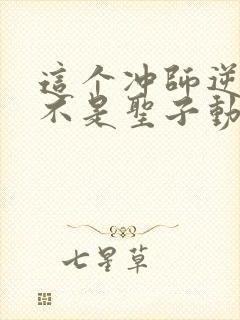 這个冲師逆
不是聖子動
七星草